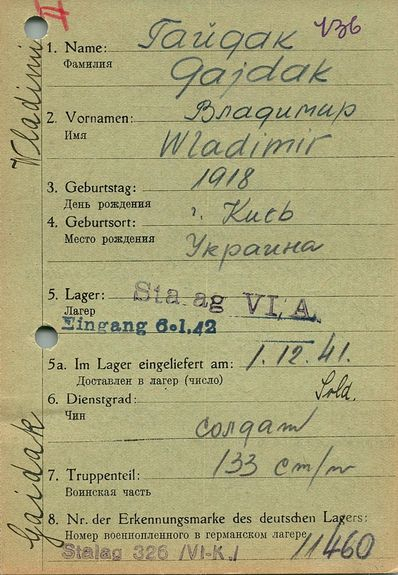 II
Vзб
1. Name: Гайдак
Фамилия
Gajdak
2. Vornamen: Владимир
Имя
Wladimir
3. Geburtstag: 1918
День рождения
4. Geburtsort: г. Киев
Место рождения
Украина
5. Lager: Stalag VI, A.
Лагер
Eingang 6.1.42
5a. Im Lager eingeliefert am: 1.12.41.
Доставлен в лагер (число)
6. Dienstgrad: Sold.
Чин
солдат
7. Truppenteil: 133 ст/п
Воинская часть
8. Nr. der Erkennungsmarke des deutschen Lagers:
Номер военнопленного в германском лагере
Stalag 326 /VI-K./ 11460
Wladimir
Gaidak